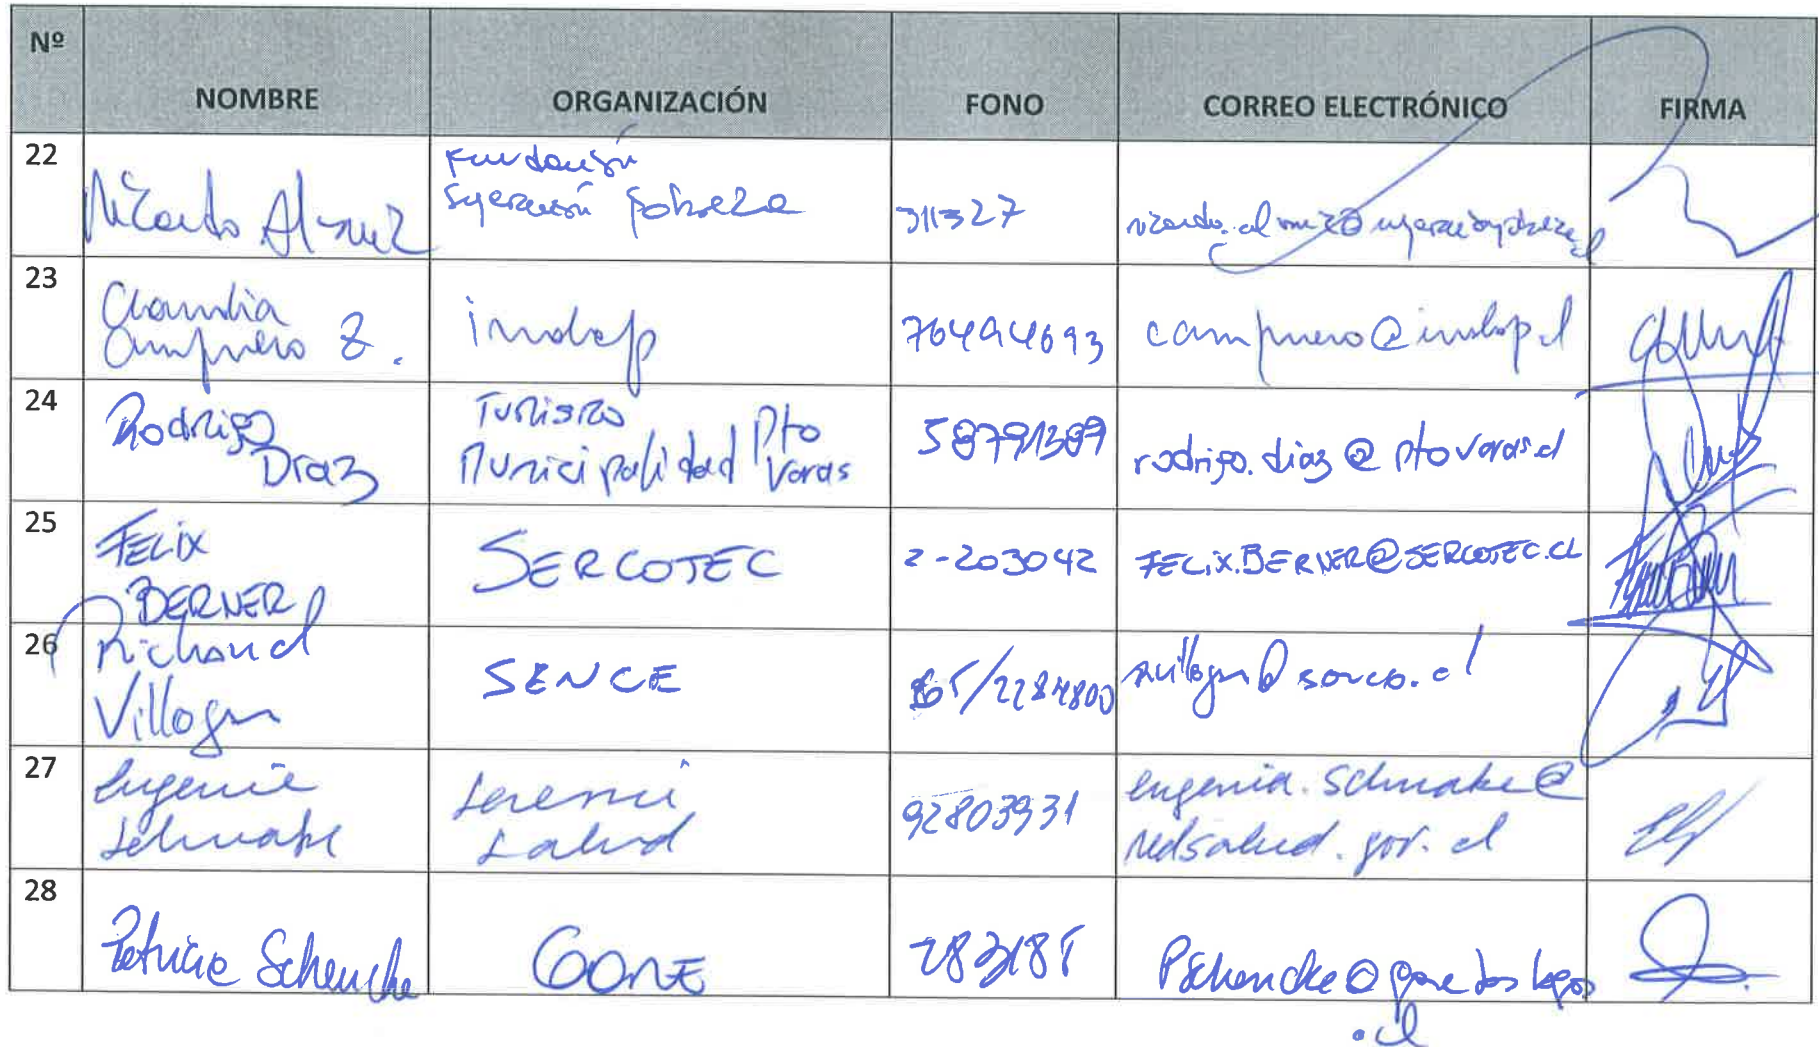 Nº NOMBRE ORGANIZACIÓN FONO CORREO ELECTRÓNICO FIRMA
22
Fundación
Superación Pobreza
311327
23
Claudia
Ampuero Z.
indap
campuero@indap.cl
24
Rodrigo
Diaz
Turismo
Municipalidad Pto
Varas
rodrigo.diaz@ptovaras.cl
25
FELIX
BERNER
SERCOTEC
2-203042
FELIX.BERNER@SERCOTEC.CL
26
Richard
Villagra
SENCE
65/2284800
27
Eugenia
Schnake
Seremi
Salud
92803931
eugenia.schnake@
redsalud.gov.cl
28
Patricia Schencke
GORE
283185
PSchencke@goreloslagos
.cl